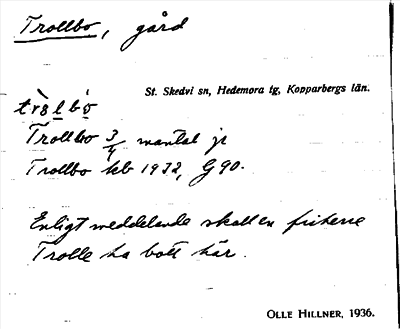 Trollbo, gård
St. Skedvi sn, Hedemora tg, Kopparbergs län.
Trollbo 3/4 mantal jr
Trollbo kb 1932, G90.
Enligt meddelande skall en
Trolle ha bott här.
OLLE HILLNER, 1936.